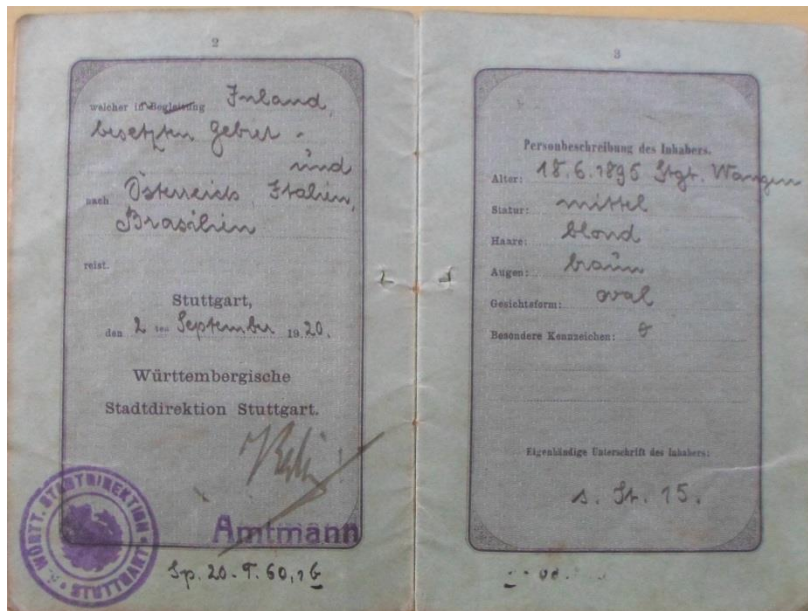 2
welcher in Begleitung Inland,
besetzten Gebiet -
und
nach Österreich Italien,
Brasilien
reist.
Stuttgart,
den 2 ten September 1920.
Württembergische
Stadtdirektion Stuttgart.
Amtmann
WÜRTT. STADTDIREKTION
STUTTGART
Sp. 20. T. 60,
3
Personbeschreibung des Inhabers.
Alter: 18.6.1895 Stgt. Wangen
Statur: mittel
Haare: blond
Augen: braun
Gesichtsform: oval
Besondere Kennzeichen:
Eigenhändige Unterschrift des Inhabers:
s. St. 15.